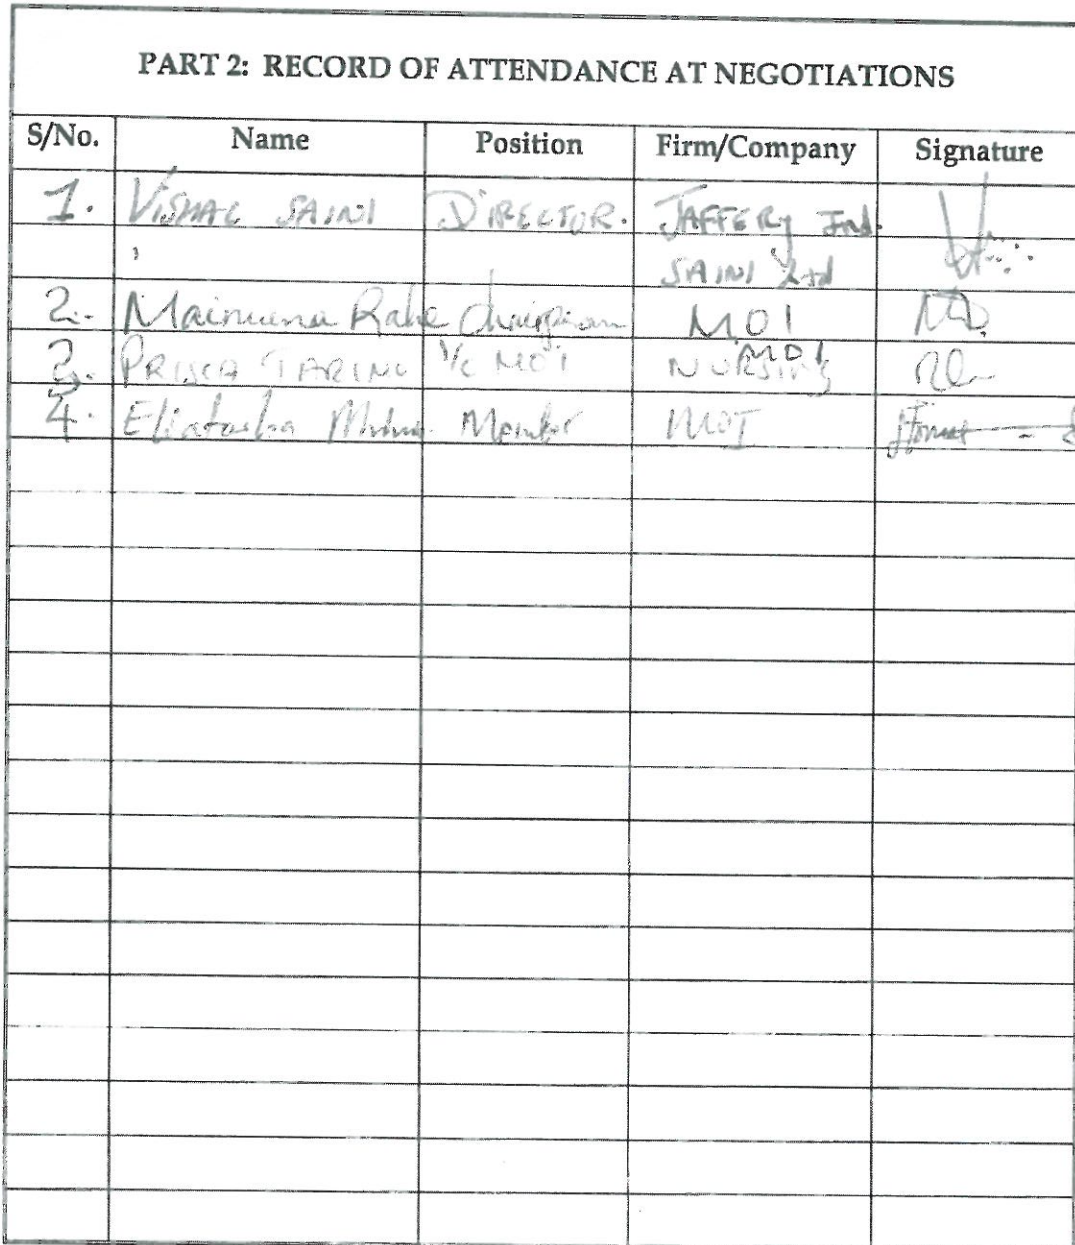 PART 2: RECORD OF ATTENDANCE AT NEGOTIATIONS
S/No. Name Position Firm/Company Signature
1. VISHAL SAINI DIRECTOR. JAFFERY Ind.
SAINI Ltd
2. Maimuna Chairperson MOI
3. PRISCA TARIMO I/C MOI NURSING MOI
4. Member MOI